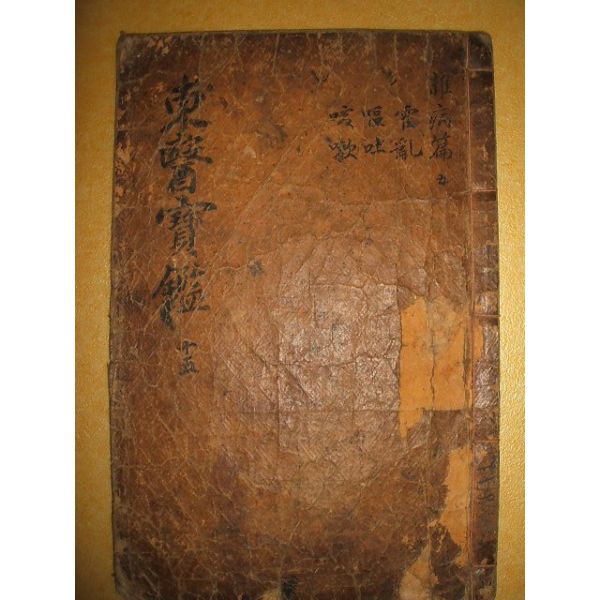 雜病篇 五
霍亂
嘔吐
咳嗽
東醫寶鑑 十五